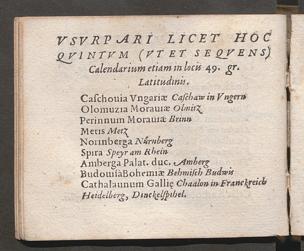 VSVRPARI LICET HOC
QVINTVM (VT ET SEQVENS)
Calendarium etiam in locis 49. gr.
Latitudinis.
Caschouia Vngariæ Caschaw in Vngern
Olomuzia Morauiæ Olmitz
Perinnum Morauiæ Brinn
Metis Metz
Norinberga Nürnberg
Spira Speyr am Rhein
Amberga Palat. duc. Amberg
Budouisa Bohemiæ Behmisch Budwis
Cathalaunum Galliæ Chaalon in Franckreich
Heidelberg, Dinckelspihel.